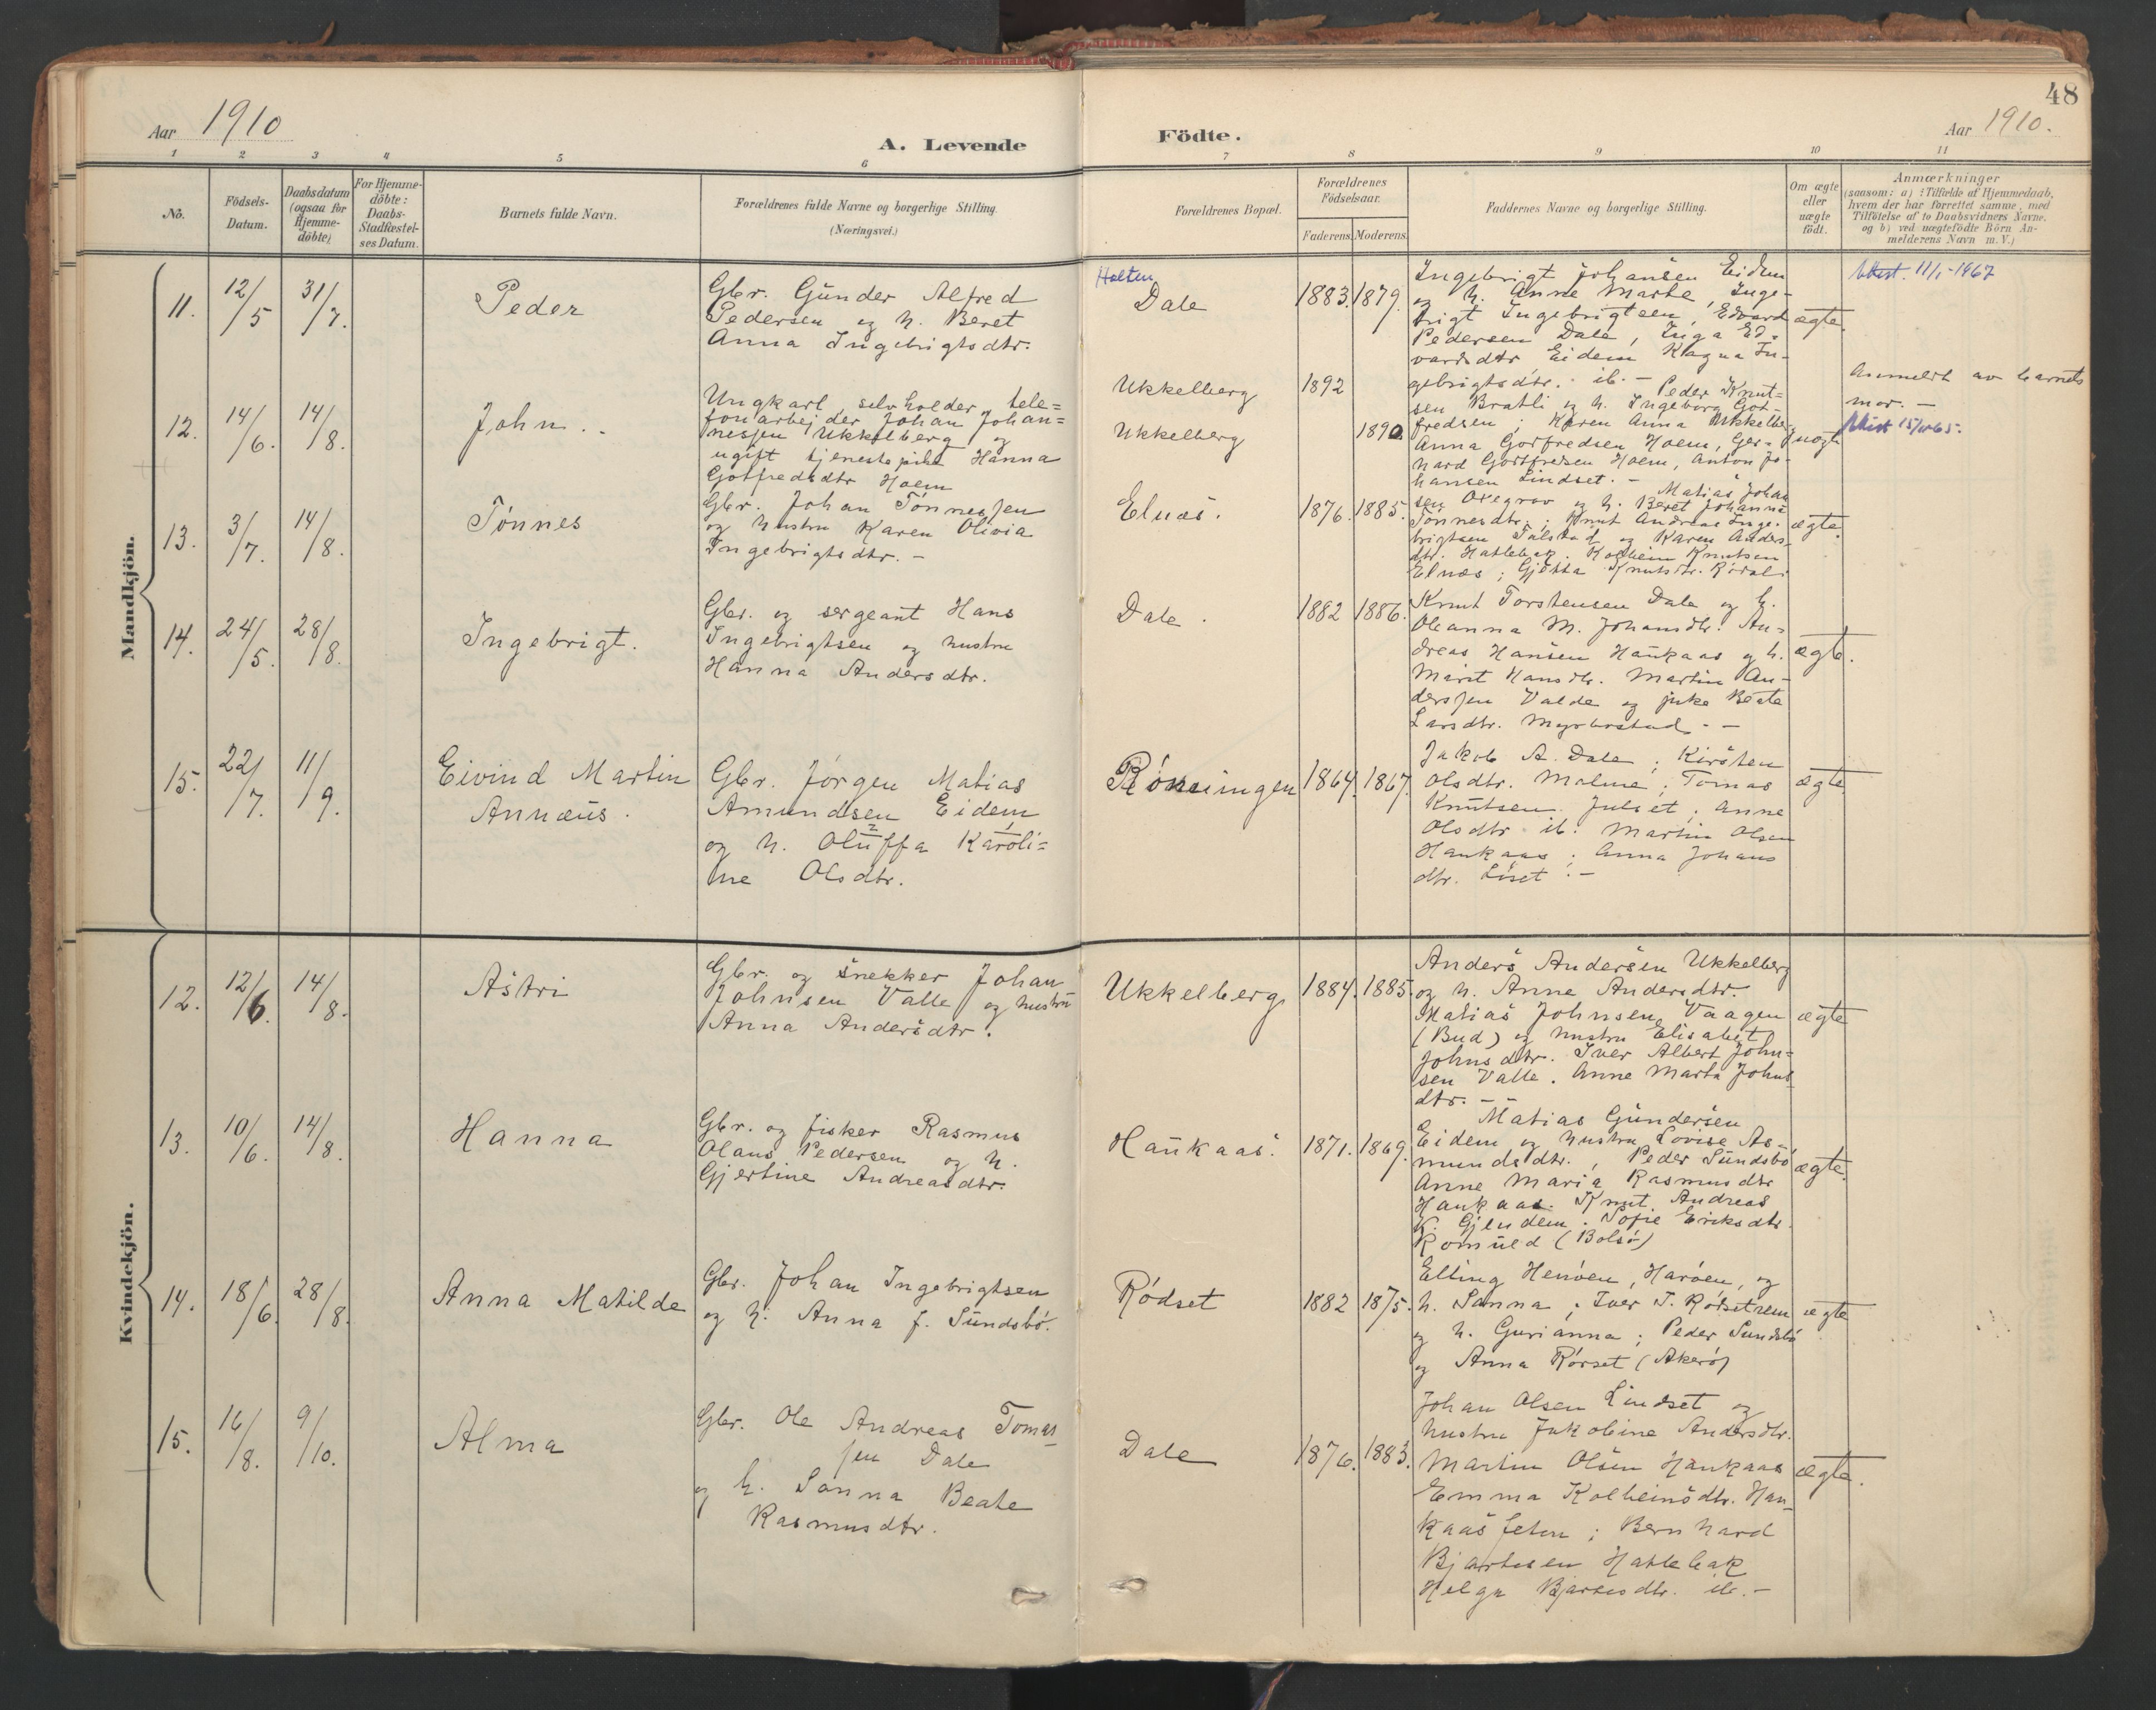 48
Aar 1910
A. Levende
Födte.
Aar 1910.
1 2 3 4 5 6 7 8 9 10 11
No.
Födsels-
Datum.
Daabsdatum
(ogsaa for
Hjemme-
döbte)
For Hjemme-
döbte:
Daabs-
Stadfæstel-
ses Datum.
Barnets fulde Navn.
Forældrenes fulde Navne og borgerlige Stilling.
(Næringsvei.)
Forældrenes Bopæl.
Forældrenes
Födselsaar.
Faderens. Moderens.
Faddernes Navne og borgerlige Stilling.
Om ægte
eller
uægte
födt.
Anmærkninger
(saasom: a) i Tilfælde af Hjemmedaab,
hvem der har forrettet samme, med
Tilföielse af to Daabsvidners Navne,
og b) ved uægtefödte Börn An-
melderens Navn m. V.)
Mandkjön.
11.
12/5
31/7.
Peder
Gbr. Gunder Alfred
Pedersen og h. Beret
Anna Ingebrigtsdtr.
Holten
Dale
1883. 1879.
Ingebrigt Johansen Eidem
og h. Anne Marte, Inge-
brigt Ingebrigtsen, Edvard
Pedersen Dale, Inga Ed-
vardsdtr Eidem Magna In-
gebrigtsdtr. ib. -
ægte.
Attest. 11/1-1967
12.
14/6.
14/8.
John.
Ungkarl, selvholder, tele=
fonarbejder Johan Johan=
nessen Ukkelberg og
ugift tjenestepike Hanna
Gotfredsdtr Hoem
Ukkelberg
Ukkelberg
1892
1890.
Peder Knut=
sen Bratli og h. Ingeborg Got-
fredsen; Karen Anna Ukkelberg
Anna Gotfredsen Hoem, Ger-
hard Gottfredsen Hoem, Anton Jo-
hansen Lindset. -
uægte
Anmeldt av barnets
mor. -
13.
3/7.
14/8.
Tønnes
Gbr. Johan Tønnessen
og hustru Karen Olivia
Ingebrigtsdtr. -
Elnæs.
1876. 1885.
Matias Johan
sen Oregrov og h. Beret Johanna
Tønnesdtr.; Knut Andreas Inge-
brigtsen Tulstad og Karen Anders-
dtr. Hatlebak. Kolbein Knutsen
Elnæs; Gjetta Knutsdtr.
ægte.
14.
24/5.
28/8.
Ingebrigt.
Gbr. og sergeant Hans
Ingebrigtsen og hustru
Hanna Andersdtr.
Dale.
1882 1886.
Knut Torstensen Dale og h.
Oleanna M. Johansdtr. An-
dreas Hansen Haukaas og h.
Marit Hansdtr. Martin An-
derssen Valde og pike Beate
Larsdtr. Myrbostad. -
ægte.
15.
22/7.
11/9.
Eivind Martin
Annæus.
Gbr. Jørgen Matias
Amundsen Eidem
og h. Oluffa Karoli=
ne Olsdtr.
Rønningen
1864. 1867.
Jakob A. Dale; Kirsten
Olsdtr. Malme; Tomas
Knutsen Julset; Anne
Olsdtr ib. Martin Olsen
Haukaas; Anna Johans
dtr. Liset. -
ægte.
Kvindekjön.
12.
12/6.
14/8.
Astri
Gbr. og snekker Johan
Johnsen Valle og hustru
Anna Andersdtr.
Ukkelberg
1884. 1885.
Anders Andersen Ukkelberg
og h. Anne Andersdtr.
Matias Johnsen Vaagen
(Bud) og hustru Elisabet
Johnsdtr. Iver Albert John=
sen Valle. Anne Marta Johns
dtr. -
ægte
13.
10/6.
14/8.
Hanna
Gbr. og fisker Rasmus
Olaus Pedersen og h.
Gjertine Andreasdtr.
Haukaas.
1871. 1869.
Matias Gundersen
Eidem og hustru Lovise As-
mundsdtr., Peder Sundsbö
Anne Maria Rasmusdtr
Haukaas. Knut Andreas
K. Gjendem. Sofie Eriksdtr.
Romuld (Bolsö)
ægte.
14.
18/6.
28/8.
Anna Matilde
Gbr. Johan Ingebrigtsen
og h. Anna f. Sundsbö.
Rødset
1882 1875.
Elling Henøen, Harøen, og
h. Sanna; Iver T. Rørsetrem
og h. Gurianna; Peder Sundsbö
og Anna Rørset (Akerö)
ægte
15.
16/8.
9/10.
Alma
Gbr. Ole Andreas Tomas-
sen Dale
og h. Sanna Beate
Rasmusdtr.
Dale
1876. 1883.
Johan Olsen Lindset og
hustru Jakobine Andersdtr.
Martin Olsen Haukaas
Emma Kolbeinsdtr. Hau-
kaassetm; Bernhard
Bjartesen Hatlebak
Helga Bjartesdtr. ib. -
ægte.